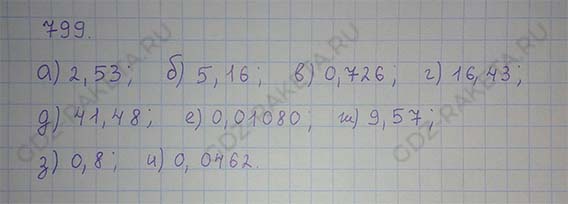 799.
а) 2,53; б) 5,16; в) 0,726; г) 16,43;
д) 41,48; е) 0,01080; ж) 9,57;
з) 0,8; и) 0,0462.
GDZ-RAKETA.RU
GDZ-RAKETA.RU